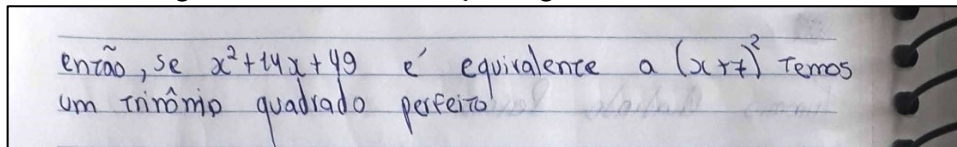 então, se x² + 14x + 49 é equivalente a (x+7)² Temos
um trinômio quadrado perfeito